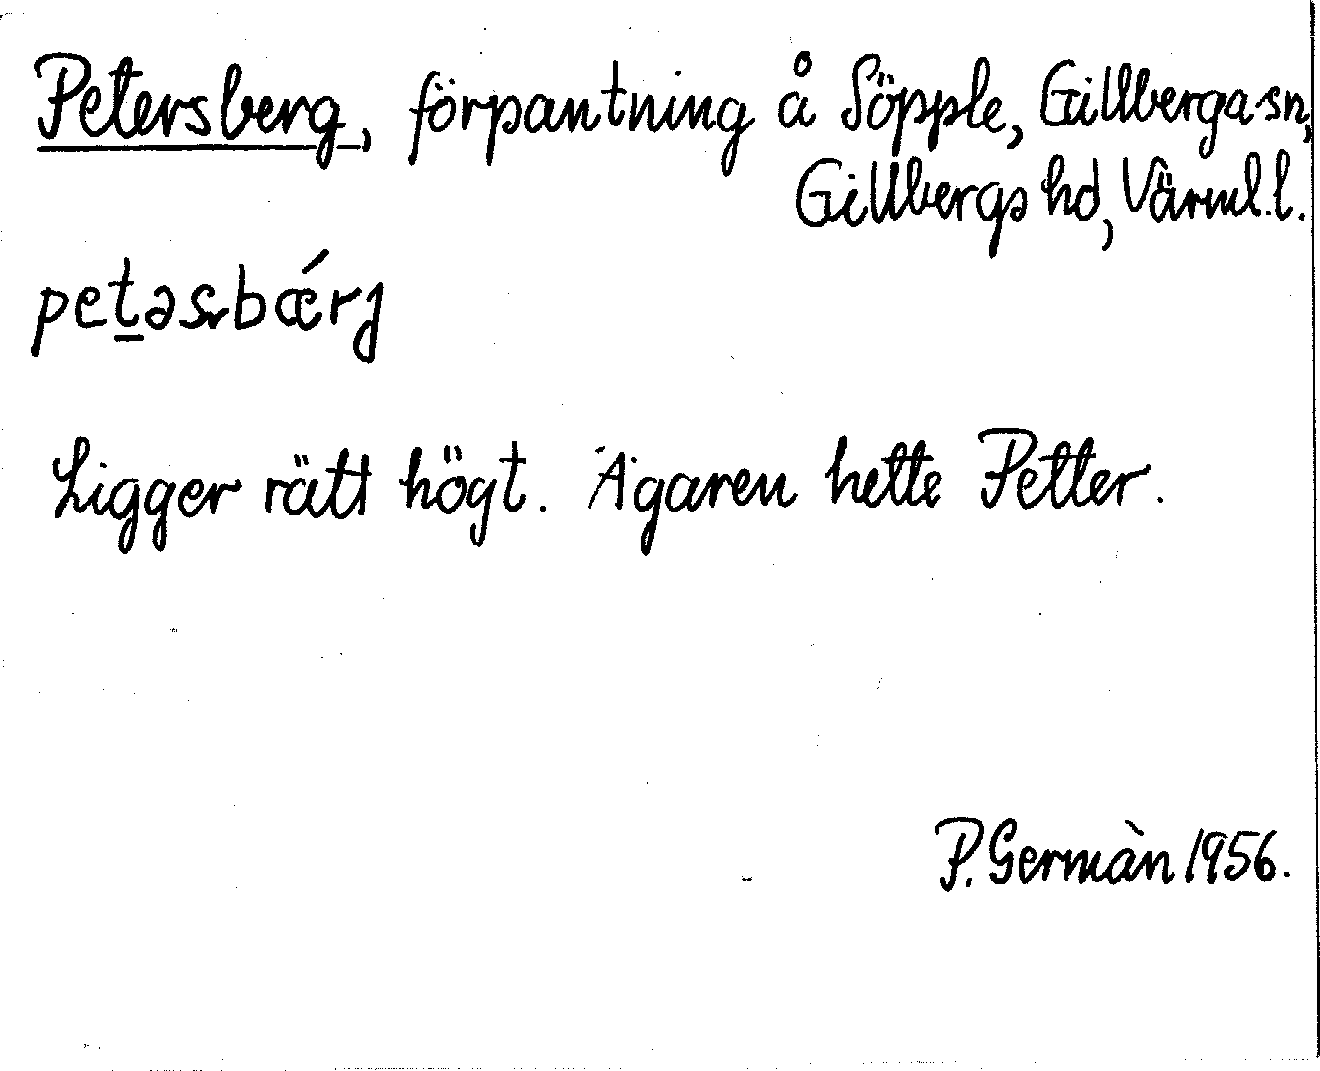 Petersberg, förpantning å Söpple, Gillberga sn,
Gillbergs hd, Värml. l.
pet̲əsrbǽrj
Ligger rätt högt. Ägaren hette Petter.
P. Germàn 1956.